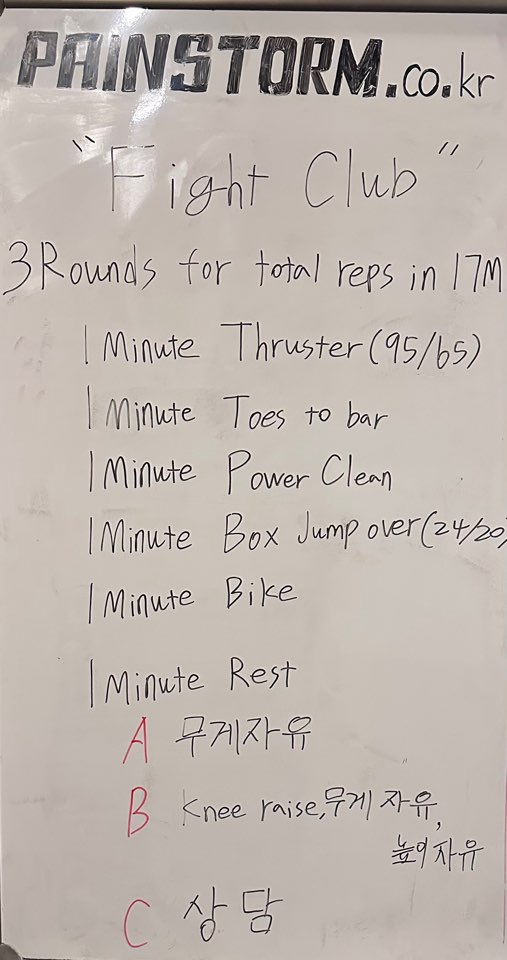 PAINSTORM.co.kr
"Fight Club"
3Rounds for total reps in 17M
1 Minute Thruster(95/65)
1 Minute Toes to bar
1 Minute Power Clean
1 Minute Box Jump over(24/20)
1 Minute Bike
1 Minute Rest
A 무게자유
B Knee raise,무게 자유,
높이자유
C 상담